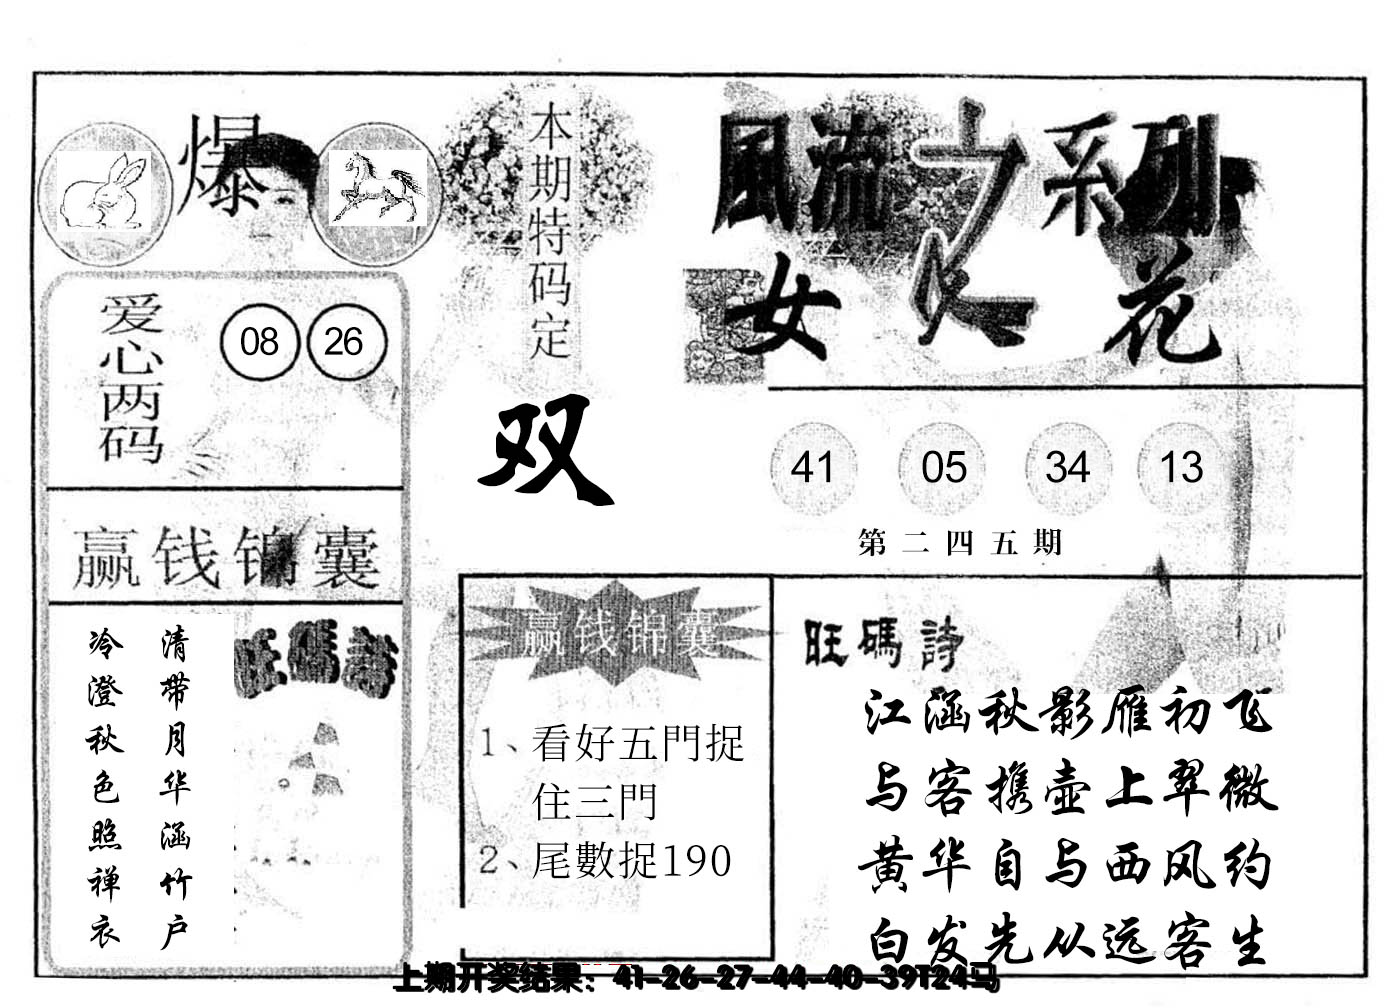 爆
本期特码定
双
風流之系列
女人花
爱心两码
08 26
41 05 34 13
第二四五期
赢钱锦囊
清带月华涵竹户
冷澄秋色照禅衣
旺碼詩
赢钱锦囊
1、看好五門捉
住三門
2、尾數捉190
旺碼詩
江涵秋影雁初飞
与客携壶上翠微
黄华自与西风约
白发先从远客生
上期开奖结果：41-26-27-44-40-39T24马